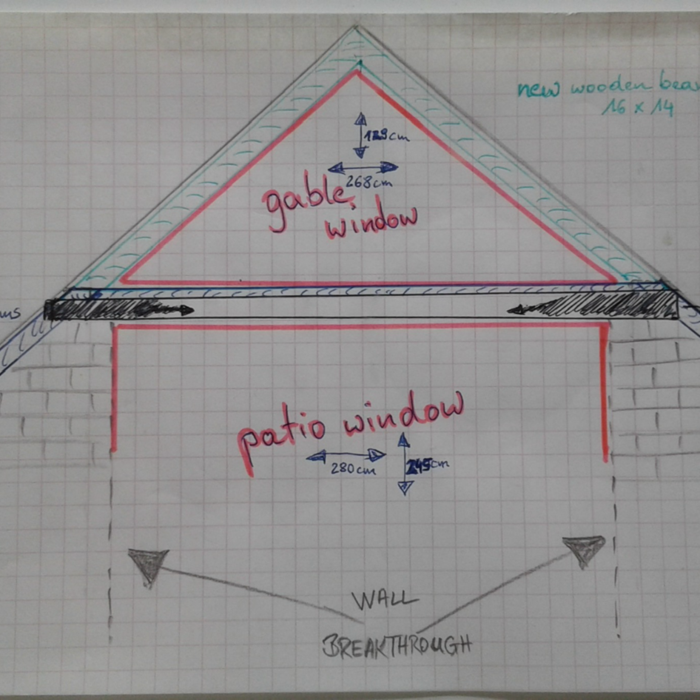 new wooden bea
16 x 14
129cm
268cm
gable
window
ms
patio window
280cm
245cm
WALL
BREAKTHROUGH